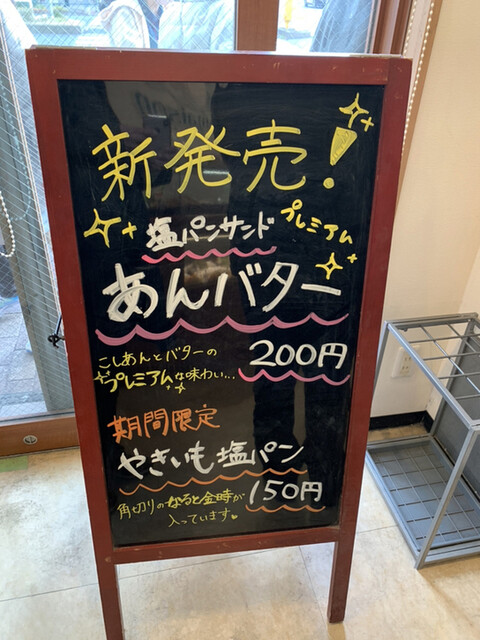 新発売!
塩パンサンド プレミアム
あんバター
こしあんとバターの
プレミアムな味わい… 200円
期間限定
やきいも塩パン
角切りのなると金時が 150円
入っています♥